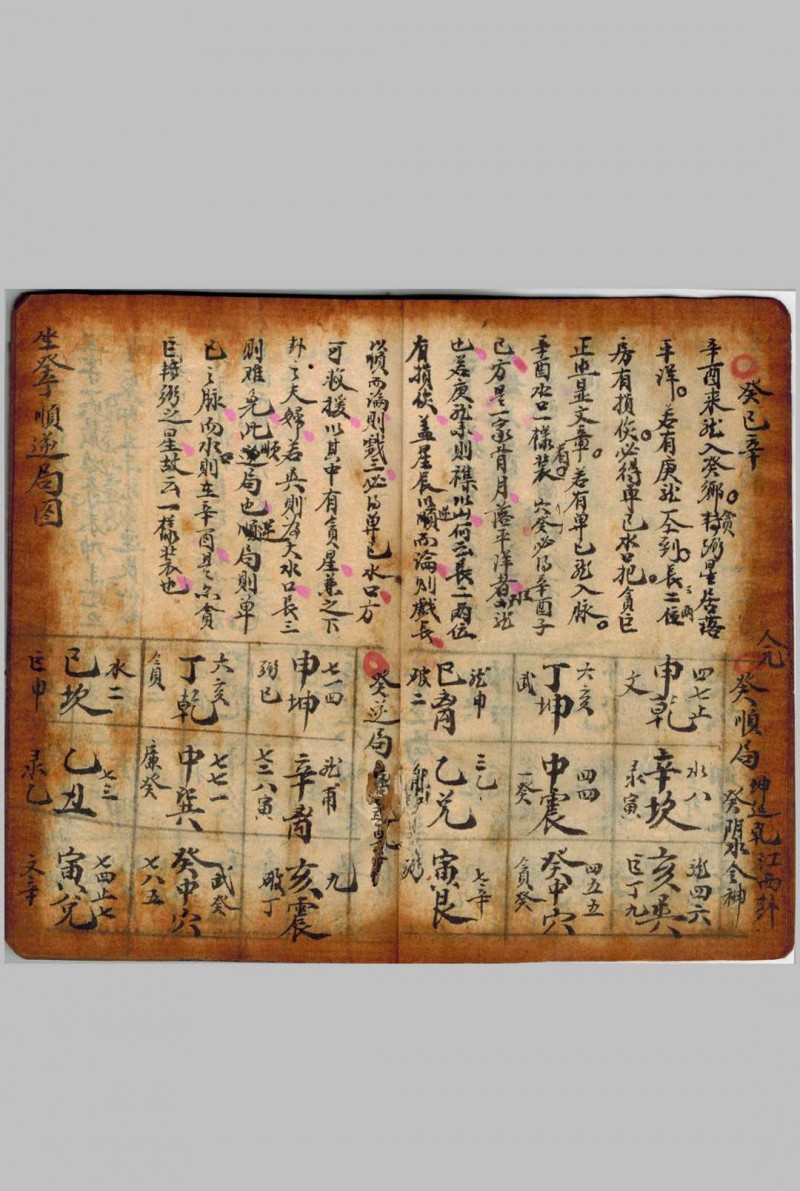 癸巳辛
辛酉来龙入癸鄉。貪狼弼星居落
平洋。若有庚龙一仝到。長二位
房有損傷。必得单巳水口把貪巨
正出显文章。若有单巳龙入脉。
辛酉水口一樣装 穴癸必得辛酉子
巳方是一家背月落平洋者水龙
也若庚龙来则襍以山何云長二两位
有損傷盖星辰以順逆而論则戲長
以順而論则戲三必得单巳水口方
可救援以其中有貪星兼之下
卦之夫婦若巽则為大水口長三
则难免此逆順局也順逆局则单
巳之脉而水口则在辛酉且之亦貪
巨輔弼之星故云一樣装也
坐癸順逆局图
人元
癸順局
坤逆乾江西卦
癸陽水全神
四七止
申乾
文
水八
辛坎
录寅
龙四六
亥巽
巨丁九
六亥
丁坤
武
四四
申震
一癸
四五五
癸甲穴
貪癸
龙申
巳离
破二
三乙
乙兑
七辛
寅艮
弼
癸逆局
七一四
申坤
弼巳
龙甫
辛离
七二八寅
九
亥震
破丁
六亥
丁乾
貪
七七一
申巽
廉癸
武癸
癸甲穴
七八五
水二
巳坎
巨申
七三
乙丑
录乙
七四止七
寅兑
文辛